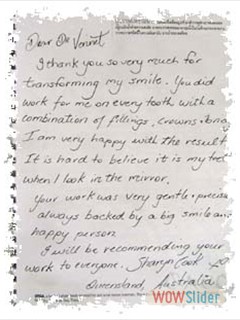 Dear Dr
I thank you so very much for
transforming my smile. You did
work for me on every tooth with a
combination of fillings, crowns
I am very happy with the result
It is hard to believe it is my
when I look in the mirror.
Your work was very gentle + precise
always backed by a big smile
happy person
I will be recommending your
work to everyone.
Queensland, Australia
WOWSlider